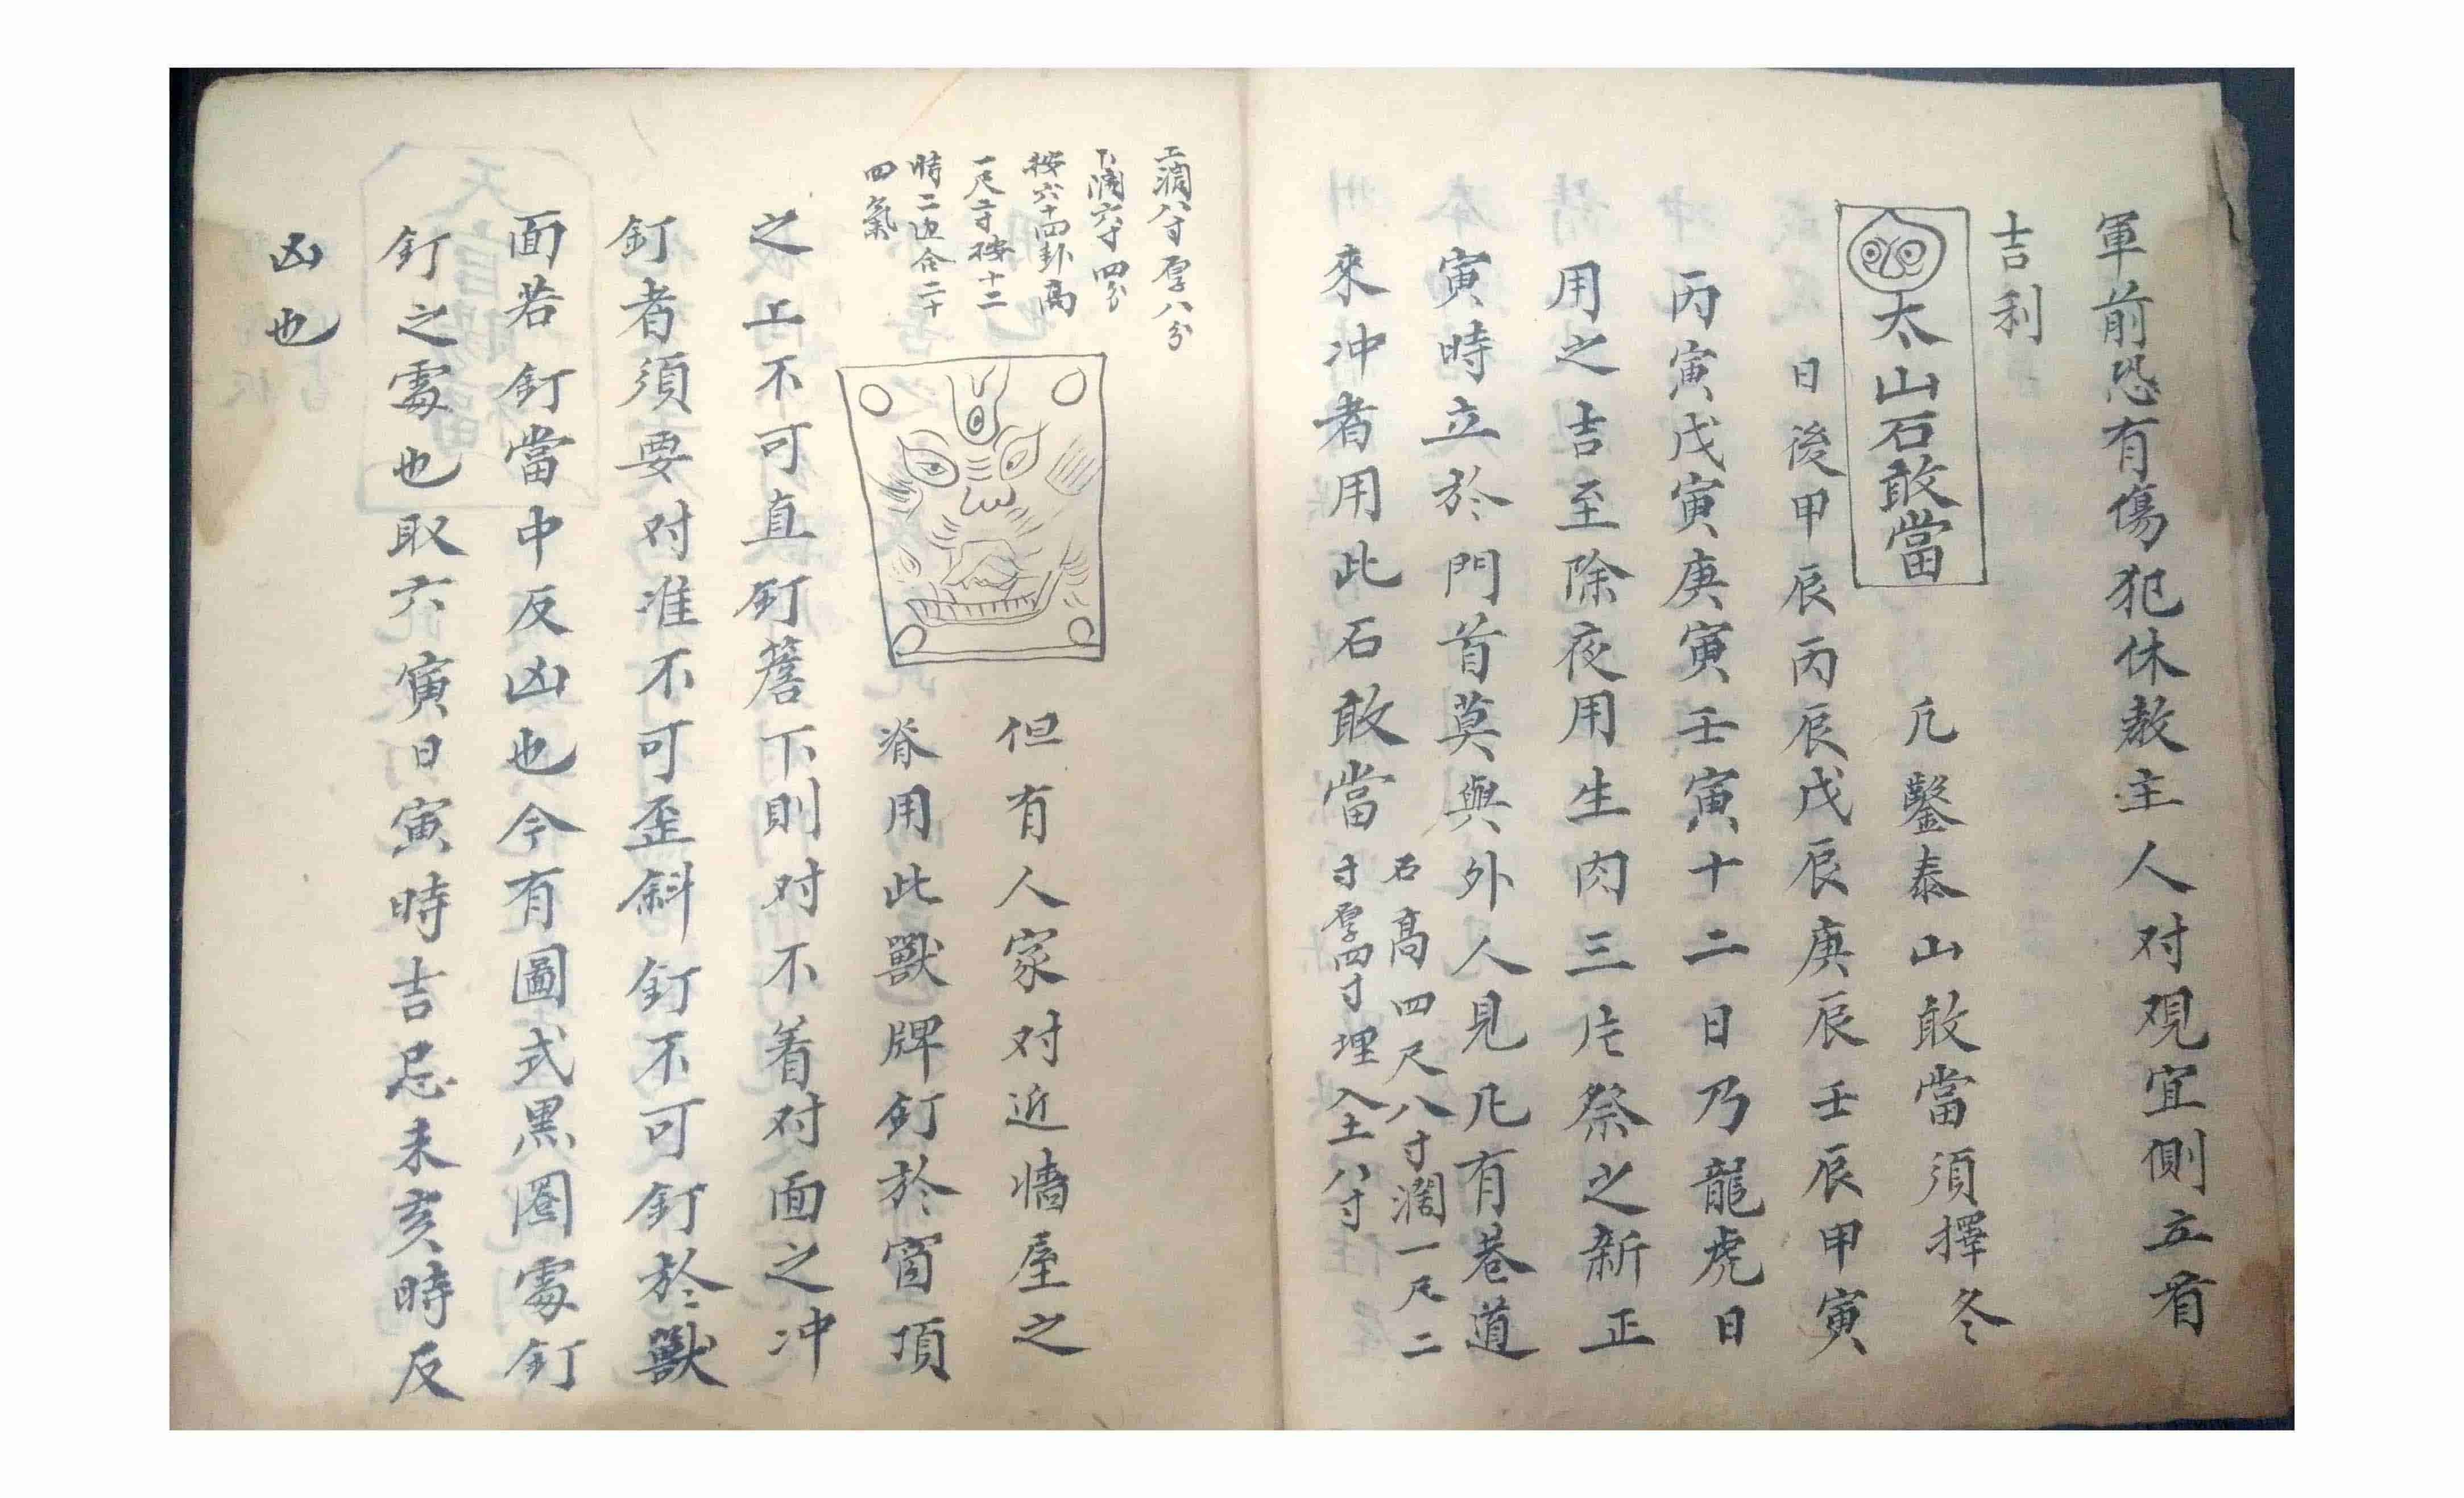 軍前恐有傷犯休教主人对观宜側立看
吉利
太山石敢當
凢鑿泰山敢當須擇冬
日後甲辰丙辰戊辰庚辰壬辰甲寅
丙寅戊寅庚寅壬寅十二日乃龍虎日
用之吉至除夜用生肉三片祭之新正
寅時立於門首莫與外人見凢有巷道
來冲者用此石敢當
石高四尺八寸濶一尺二
寸厚四寸埋入土八寸
上濶八寸厚八分
下濶六寸四分
按六十四卦高
一尺二寸按十二
時二边合二十
四氣
但有人家对近墻屋之
脊用此獸牌釘於窗頂
之上不可直釘簷下則对不着对面之冲
釘者須要对准不可歪斜釘不可釘於獸
面若釘當中反凶也今有圖式黑圈䖏釘
釘之䖏也取六寅日寅時吉忌未亥時反
凶也